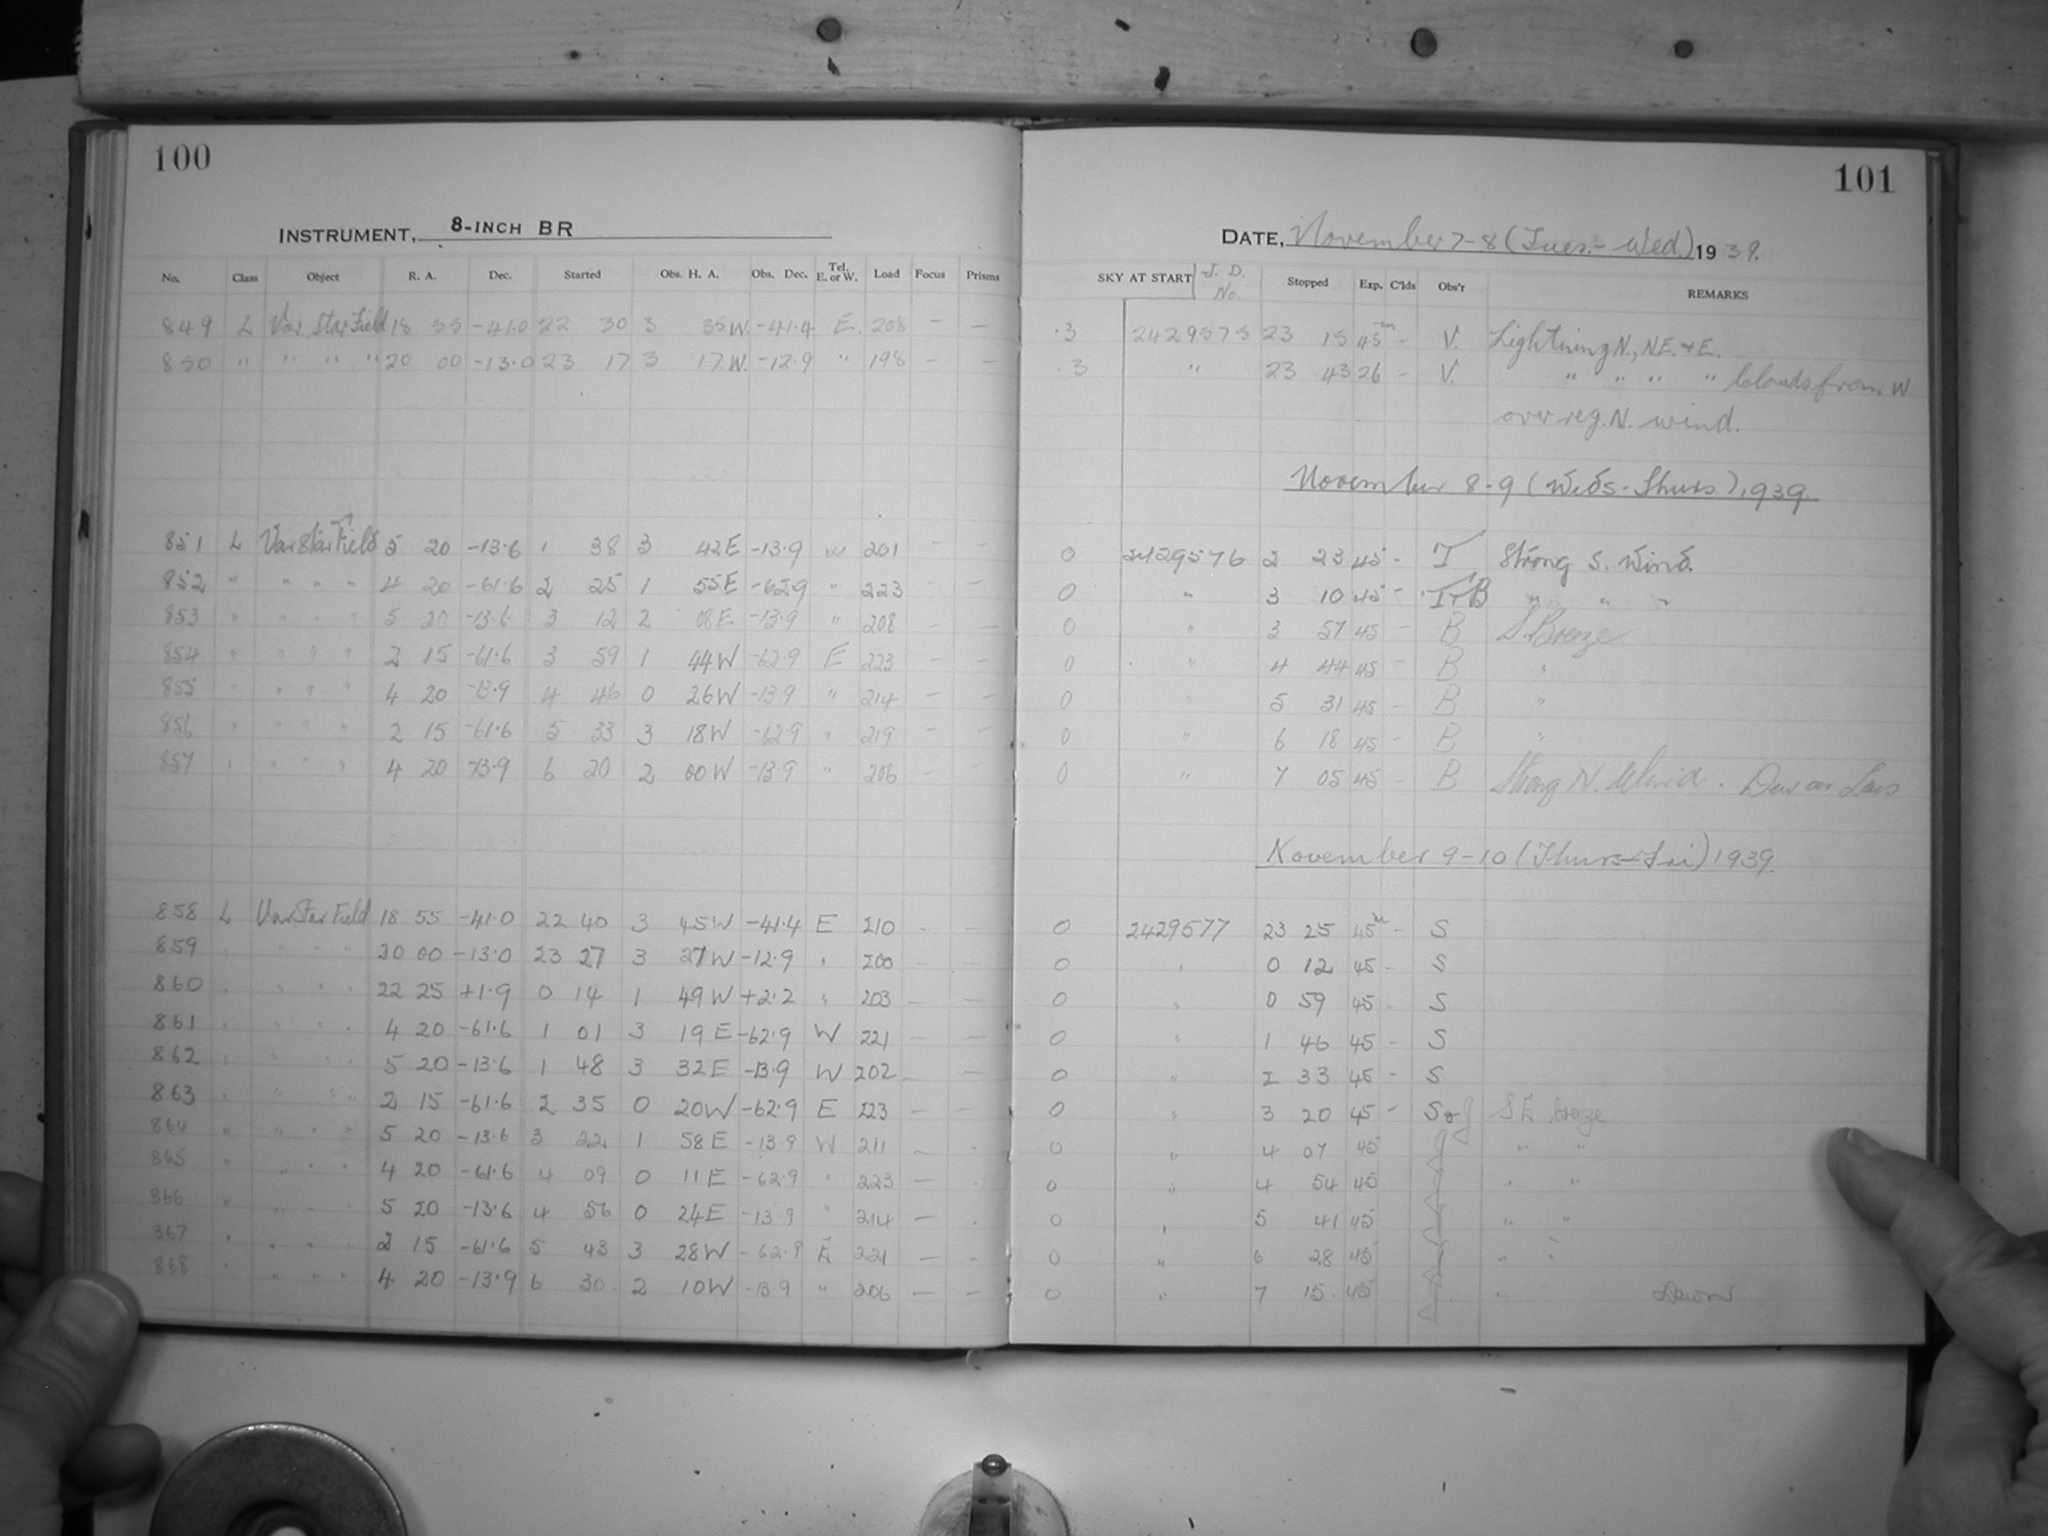 100
INSTRUMENT, 8-INCH BR
No. Class Object R. A. Dec. Started Obs. H. A. Obs. Dec. Tel. E. or W. Load Focus Prisms
849 L Var. Star Field 18 55 -41.0 22 30 3 35W. -41.4 E. 208 - -
850 " " " " 20 00 -13.0 23 17 3 17W. -12.9 " 198 - -
851 L Var Star Field 5 20 -13.6 1 38 3 42E -13.9 W 201 - -
852 " " " " 4 20 -61.6 2 25 1 55E -62.9 " 223 - -
853 " " " " 5 20 -13.6 3 12 2 08E -13.9 " 208 - -
854 " " " " 2 15 -61.6 3 59 1 44W -62.9 E 223 - -
855 " " " " 4 20 -13.9 4 46 0 26W -13.9 " 214 - -
856 " " " " 2 15 -61.6 5 33 3 18W -62.9 " 219 - -
857 " " " " 4 20 -13.9 6 20 2 00W -13.9 " 206 - -
858 L Var Star Field 18 55 -41.0 22 40 3 45W -41.4 E 210 - -
859 " " " " 20 00 -13.0 23 27 3 27W -12.9 " 200 - -
860 " " " " 22 25 +1.9 0 14 1 49W +2.2 " 203 - -
861 " " " " 4 20 -61.6 1 01 3 19E -62.9 W 221 - -
862 " " " " 5 20 -13.6 1 48 3 32E -13.9 W 202 - -
863 " " " " 2 15 -61.6 2 35 0 20W -62.9 E 223 - -
864 " " " " 5 20 -13.6 3 22 1 58E -13.9 W 211 - -
865 " " " " 4 20 -61.6 4 09 0 11E -62.9 " 223 - -
866 " " " " 5 20 -13.6 4 56 0 24E -13.9 " 214 - -
867 " " " " 2 15 -61.6 5 43 3 28W -62.9 E 221 - -
868 " " " " 4 20 -13.9 6 30 2 10W -13.9 " 206 - -
101
DATE, November 7-8 (Tues.- Wed.) 1939.
SKY AT START J. D. No. Stopped Exp. C'lds Obs'r REMARKS
.3 2429575 23 15 45m - V. Lightning N., NE. + E.
.3 " 23 43 26 - V. " " " " Clouds from W.
over reg. N. wind.
November 8-9 (Weds-Thurs), 1939.
0 2429576 2 23 45 - T Strong S. Wind.
0 " 3 10 45 - T+B " " "
0 " 3 57 45 - B S Breeze
0 " 4 44 45 - B "
0 " 5 31 45 - B "
0 " 6 18 45 - B "
0 " 7 05 45 - B Strong N. Wind. Dew on Lens
November 9-10 (Thurs-Fri) 1939
0 2429577 23 25 45m - S
0 " 0 12 45 - S
0 " 0 59 45 - S
0 " 1 46 45 - S
0 " 2 33 45 - S
0 " 3 20 45 - S+J SE breeze
0 " 4 07 45 " "
0 " 4 54 45 " "
0 " 5 41 45 " "
0 " 6 28 45 " "
0 " 7 15 45 " Dawn